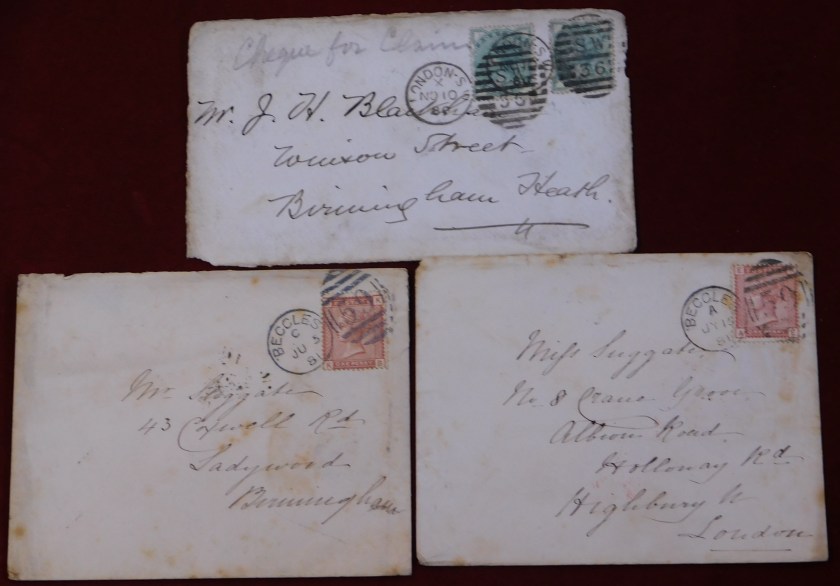 Cheque for Claim
LONDON-S
X
NO 10
SW
36
SW
36
Mr. J. H.
Winson Street
Birmingham Heath.
BECCLES
C
JU 5
81
Mr Suggate
43 Coxwell Rd
Ladywood
Birmingham
BECCLES
A
JY 15
81
Miss Suggate
No 8 Crane Grove
Albion Road
Holloway Rd
Highbury N
London